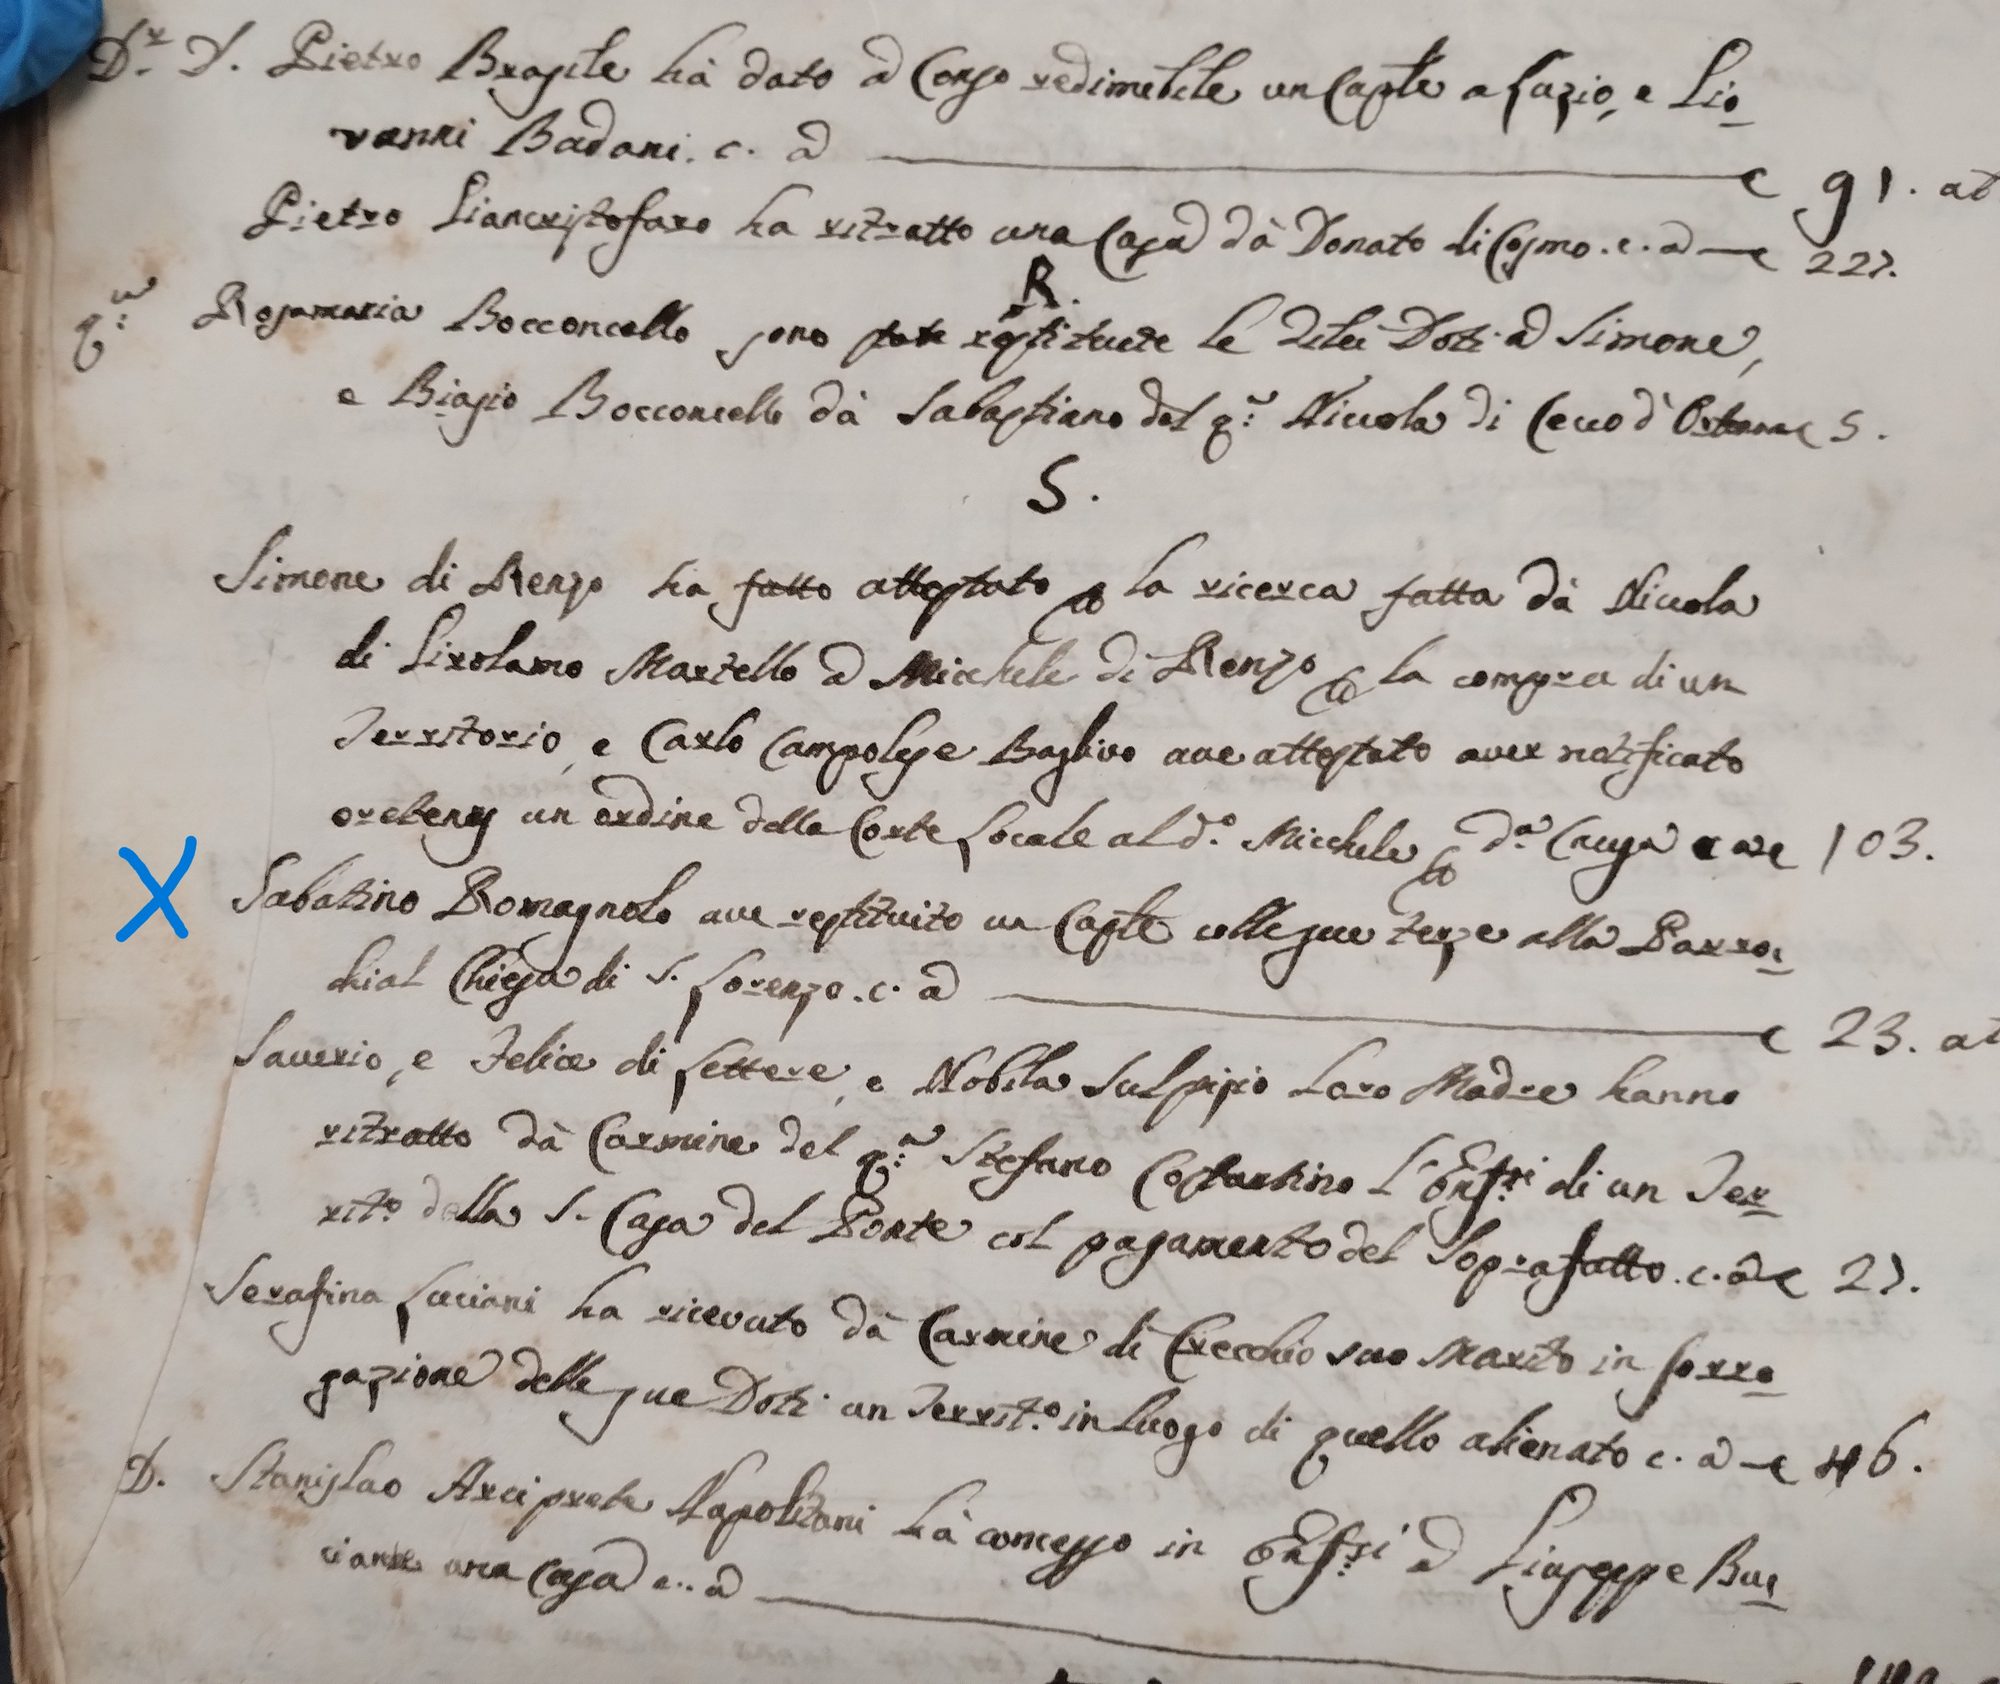 Dr. D. Pietro Brasile hà dato à Censo redimibile un Caple a Luzio, e Gio=
vanni Badani. c. à c 91. at
Pietro Giancristofaro ha ritratto una Casa dà Donato di Cosmo. c. à c 227.
R.
q.m Rosamaria Bocconcello sono state restituite le di lei Doti à Simone,
e Biagio Bocconcello dà Sabastiano del q.m Niccola di Cecco d' Ortona c 5.
S.
Simone di Renzo ha fatto attestato p la ricerca fatta dà Niccola
di Girolamo Martello à Micchele di Renzo p la compra di un
Territorio, e Carlo Campolese Baglivo ave attestato aver notificato
oretens un ordine della Corte Locale al d.o Micchele p d.a Causa c 103.
X Sabatino Romagnolo ave restituito un Caple colle sue terze alla Parro=
chial Chiesa di S. Lorenzo. c. à c 23. at
Saverio, e Felice di Lettere, e Nobila Sulpizio Loro Madre hanno
ritratto dà Carmine del q.m Stefano Costantino L'Enf.si di un Ter=
rit.o della S. Casa del Ponte col pagamento del Soprafatto. c. à c 27.
Serafina Luciani ha ricevuto dà Carmine di Crecchio suo Marito in surro=
gazione delle sue Doti un Territ.o in luogo di quello alienato c. à c 46.
D. Stanislao Arciprete Napolitani hà concesso in Enf.si à Giuseppe Buc=
ciante una Casa c. à